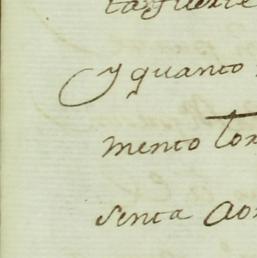 ta fuerte
y quanto
mento tor
senta aor